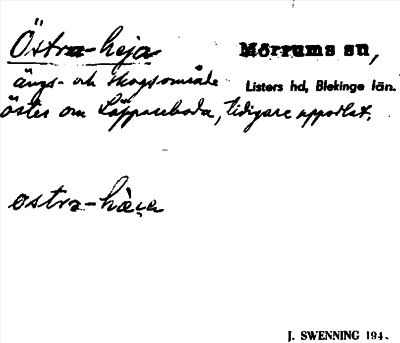 Östra-heja Mörrums sn,
ängs- och skogsområde Listers hd, Blekinge län.
öster om Läppareboda, tidigare uppodlat.
ostra-hæja
J. SWENNING 194.